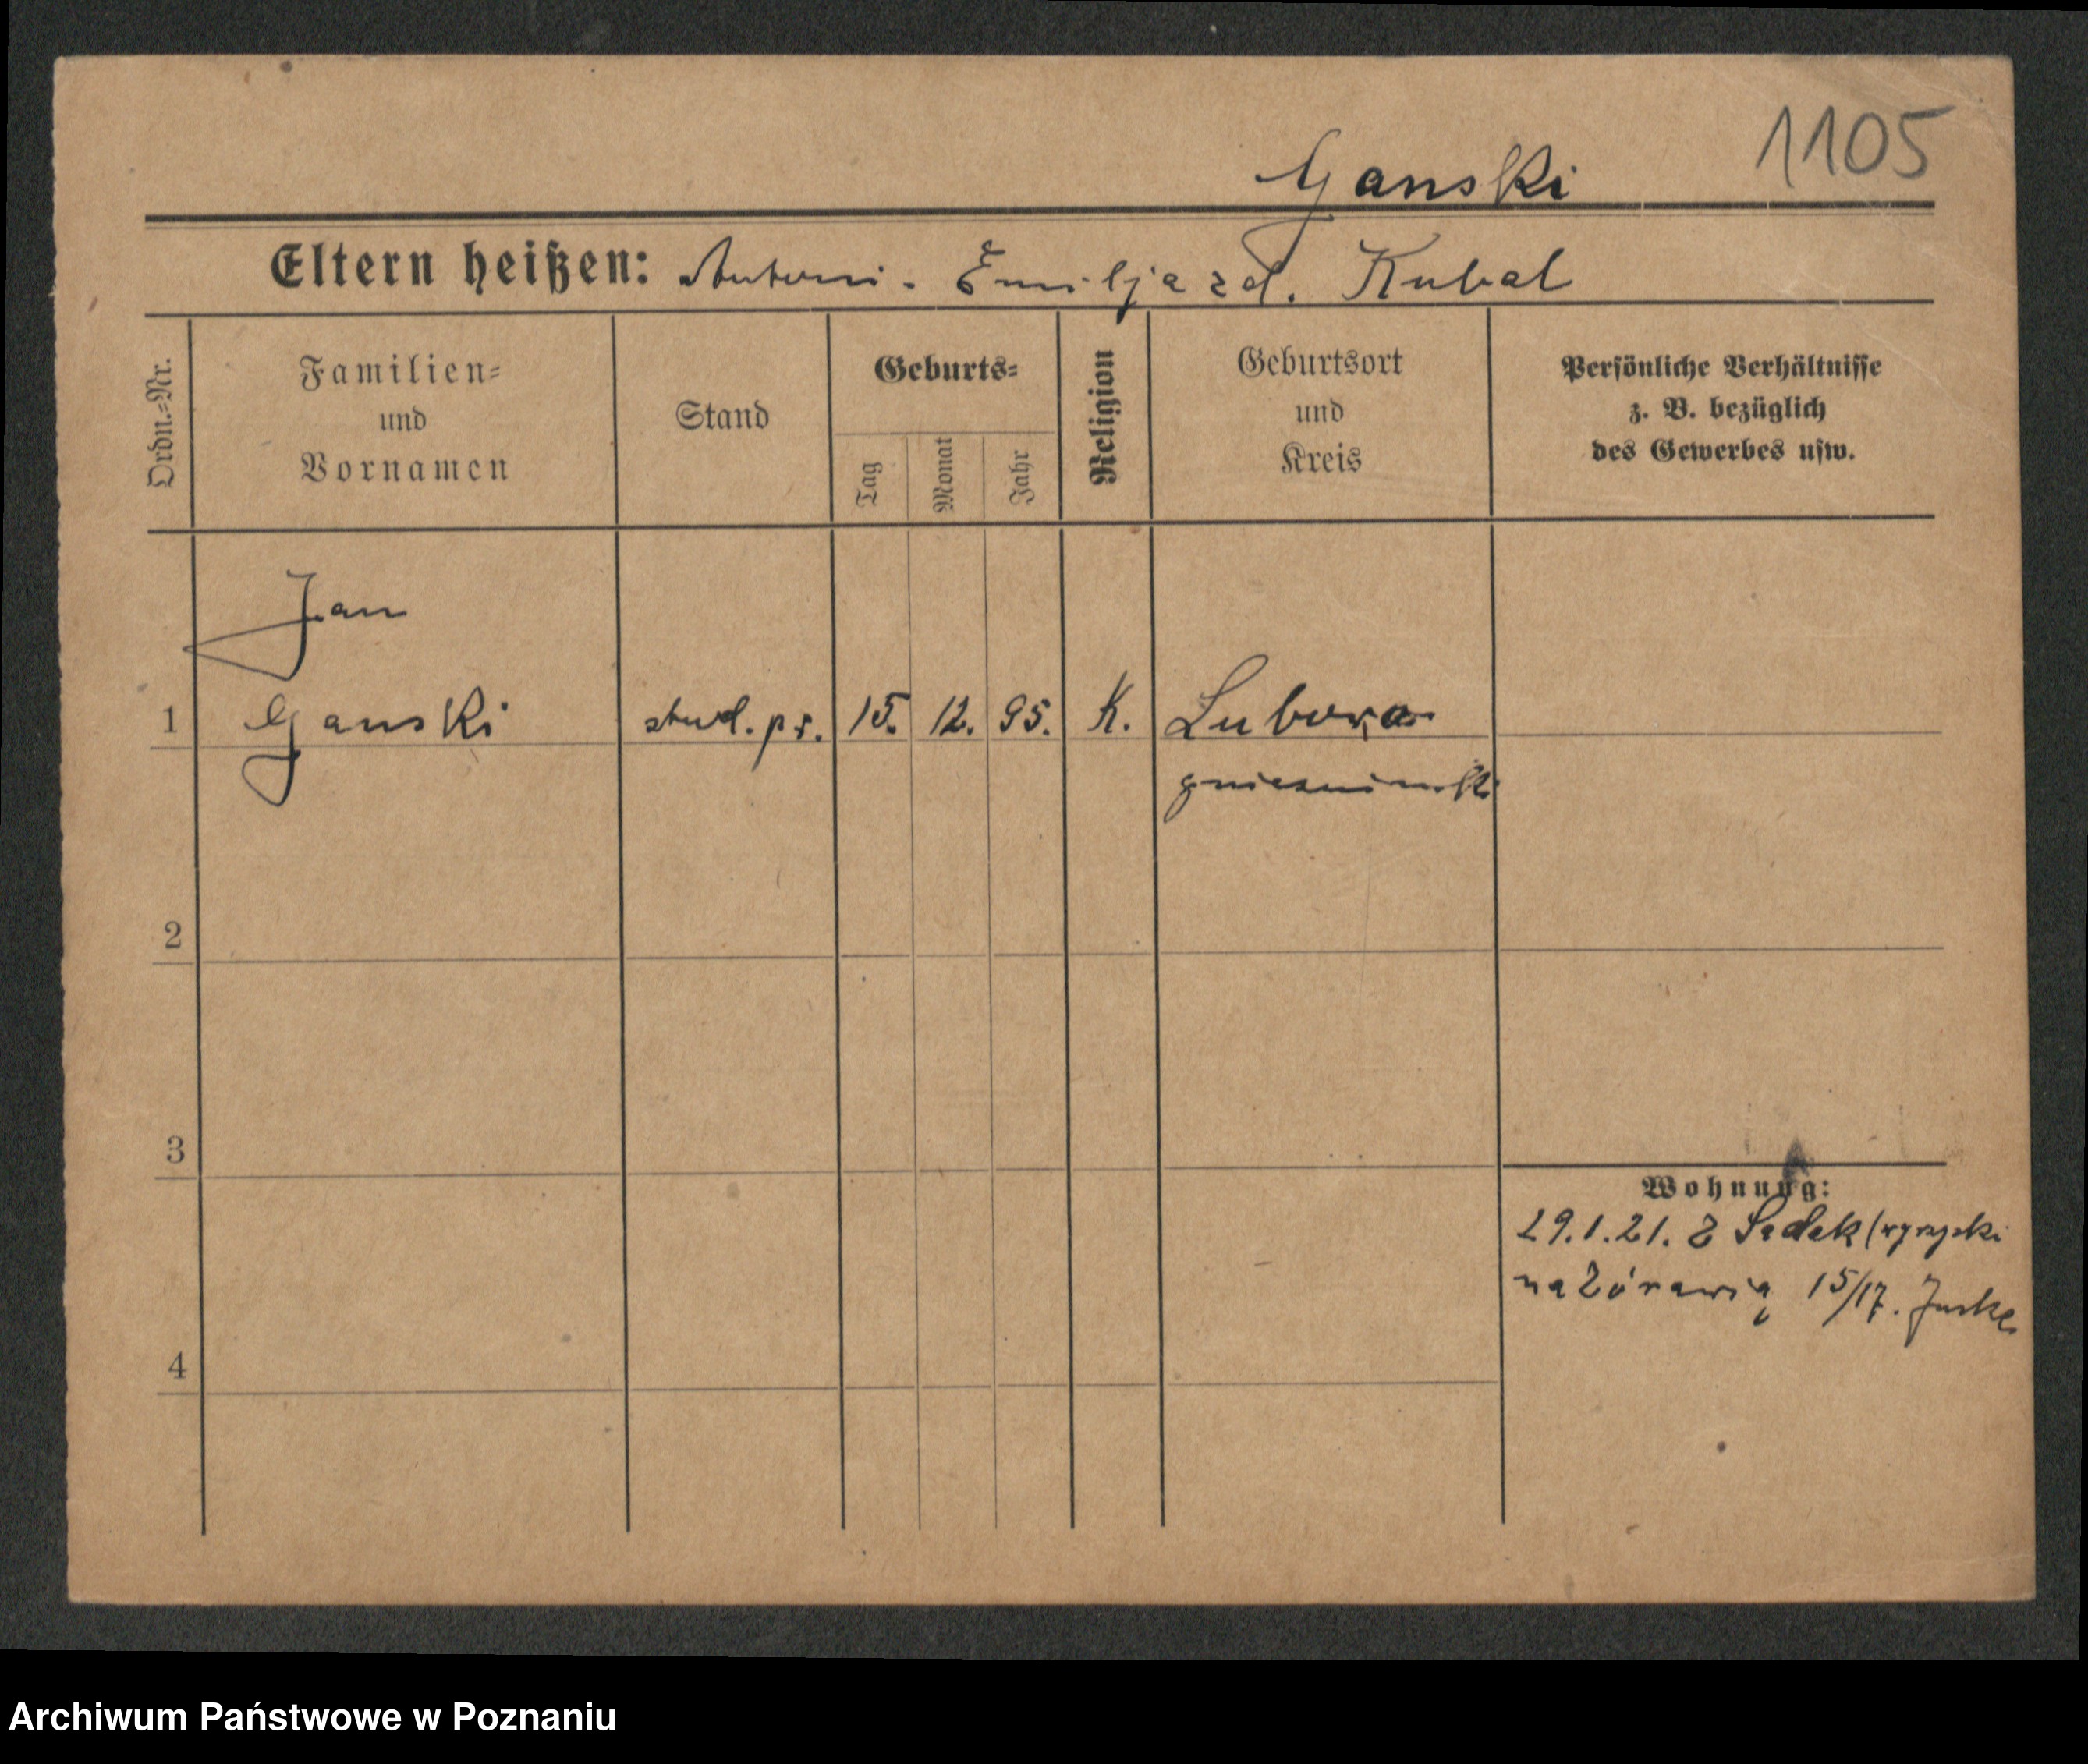 1105
Ganski
Eltern heißen: Antoni. Emilja zd. Kubal
Ordn.=Nr.
Familien=
und
Vornamen
Stand
Geburts=
Tag
Monat
Jahr
Religion
Geburtsort
und
Kreis
Persönliche Verhältnisse
z. B. bezüglich
des Gewerbes usw.
Jan
1 Ganski stud. pr. 15. 12. 95. K. Lubowo
gniezninski
2
3
4
Wohnung:
29.1.21. z Sadek (wyrzyski
na Żórawią 15/17.
Archiwum Państwowe w Poznaniu